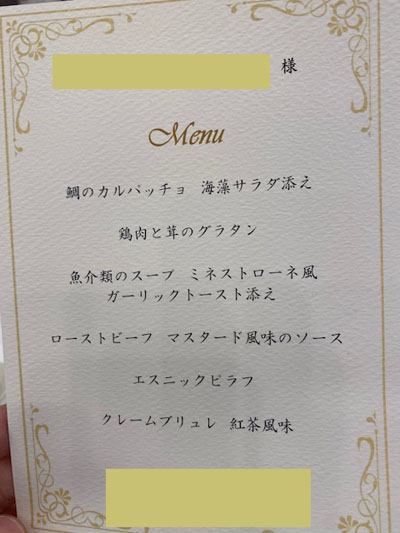 様
Menu
鯛のカルパッチョ 海藻サラダ添え
鶏肉と茸のグラタン
魚介類のスープ ミネストローネ風
ガーリックトースト添え
ローストビーフ マスタード風味のソース
エスニックピラフ
クレームブリュレ 紅茶風味